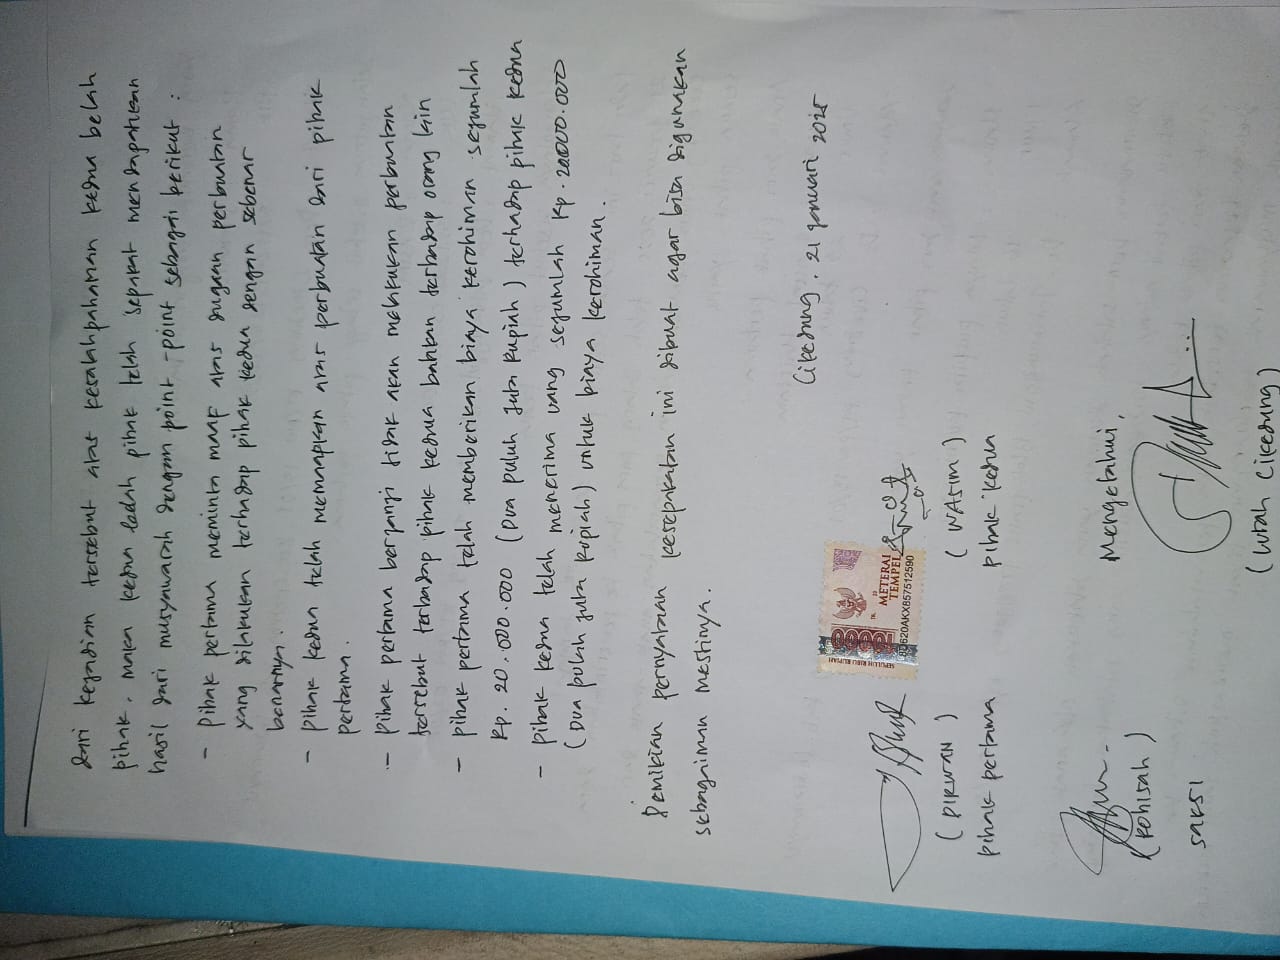 dari kejadian tersebut atas kesalahpahaman kedua belah
pihak, maka kedua belah pihak telah sepakat mendapatkan
hasil dari musyawarah dengan point-point sebagai berikut :
- Pihak pertama meminta maaf atas dugaan perbuatan
yang dilakukan terhadap pihak kedua dengan sebenar
benarnya.
- Pihak kedua telah memaafkan atas perbuatan dari pihak
pertama.
- Pihak pertama berjanji tidak akan melakukan perbuatan
tersebut terhadap pihak kedua bahkan terhadap orang lain
- Pihak pertama telah memberikan biaya kerohiman sejumlah
Rp. 20.000.000 (Dua puluh juta Rupiah) terhadap pihak kedua
- Pihak kedua telah menerima uang sejumlah Rp. 20.000.000
(Dua puluh juta Rupiah) untuk biaya kerohiman.
Demikian pernyataan kesepakatan ini dibuat agar bisa digunakan
sebagaiman mestinya.
Cikedung, 21 januari 2025
METERAI
TEMPEL
10000
SEPULUH RIBU RUPIAH
620AKX857512590
(DIRWAN)
(WASIM)
pihak pertama
pihak kedua
Mengetahui,
(ROHISAH)
(Lurah Cikedung)
SAKSI